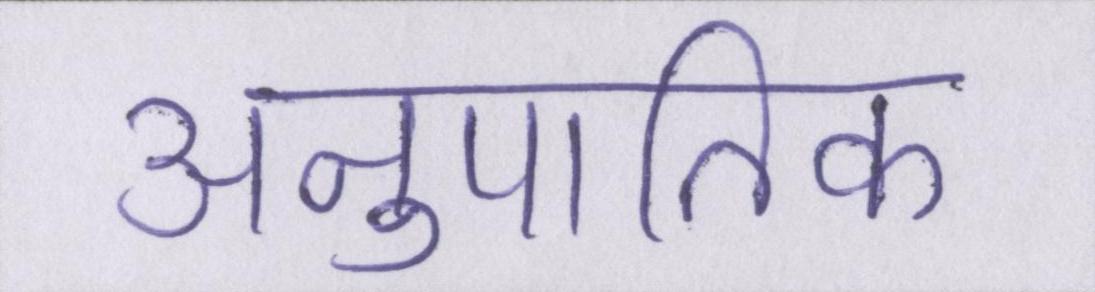 अनुपातिक